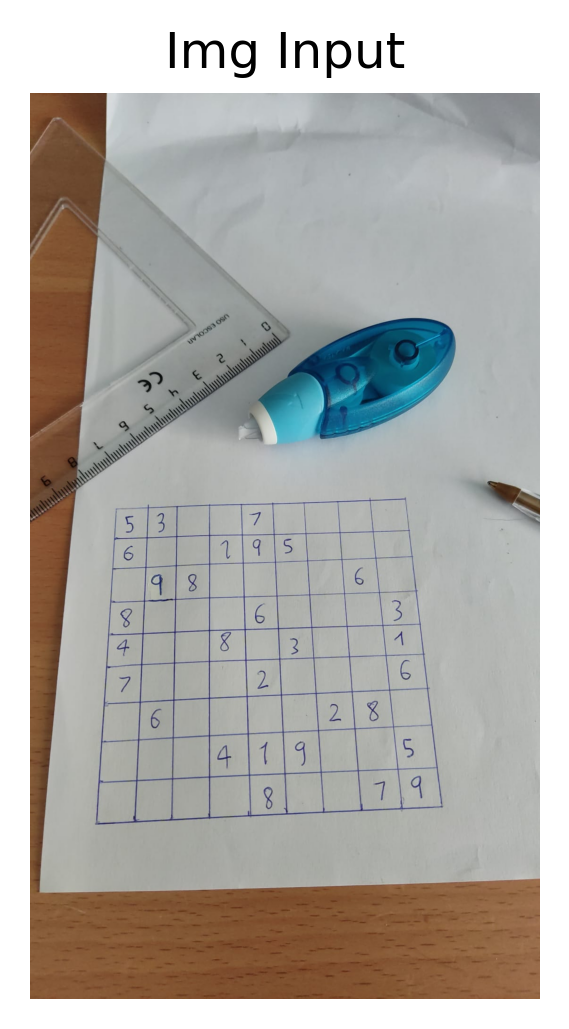 Img Input
USO ESCOLAR
0 1 2 3 4 5 6 7 8 9
CE
5 3 7
6 1 9 5
9 8 6
8 6 3
4 8 3 1
7 2 6
6 2 8
4 1 9 5
8 7 9